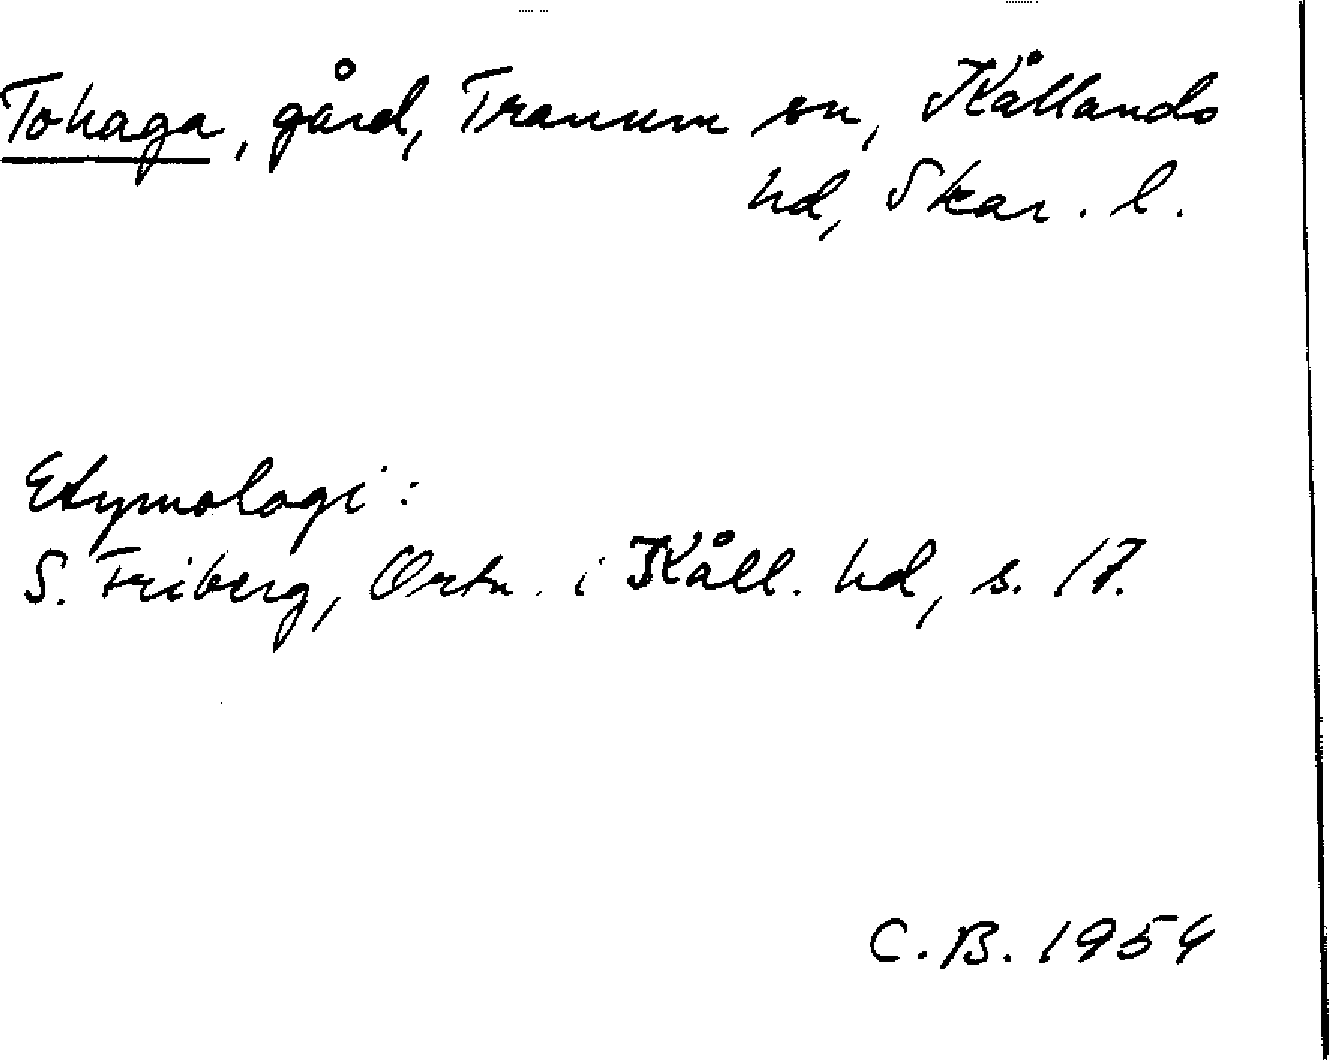 Tohaga, gård, Tranum sn, Kållands
hd, Skar. l.
Etymologi:
S. Friberg, Ortn. i Kåll. hd, s. 17.
C.B. 1954